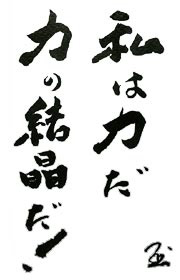 私は力だ
力の結晶だ!
玉